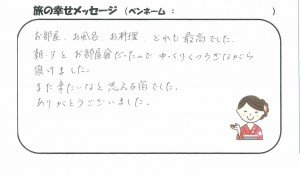 旅の幸せメッセージ （ペンネーム： ）
お部屋、お風呂、お料理、どれも最高でした。
朝・夕とお部屋食だったので ゆっくりくつろぎながら
頂けました。
また来たいなと思える宿でした。
ありがとうございました。